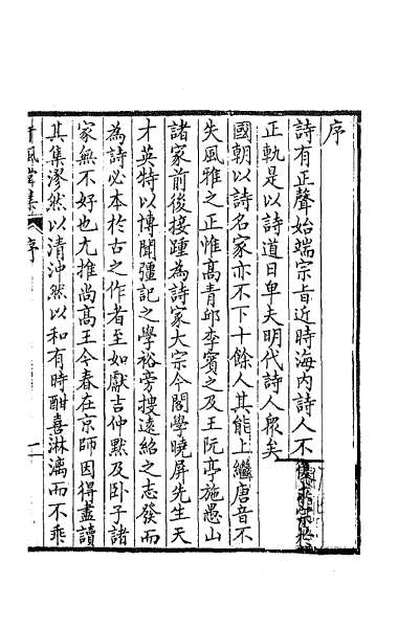 序
詩有正聲始端宗旨近時海内詩人不
正軌是以詩道日卑夫明代詩人衆矣
國朝以詩名家亦不下十餘人其能上繼唐音不
失風雅之正惟高青邱李賓之及王阮亭施愚山
諸家前後接踵為詩家大宗今閣學曉屏先生天
才英特以博聞彊記之學裕旁搜遠紹之志發而
為詩必本於古之作者至如獻吉仲默及卧子諸
家無不好也尤推尚高王今春在京師因得盡讀
其集漻然以清沖然以和有時酣喜淋漓而不乘
序
一